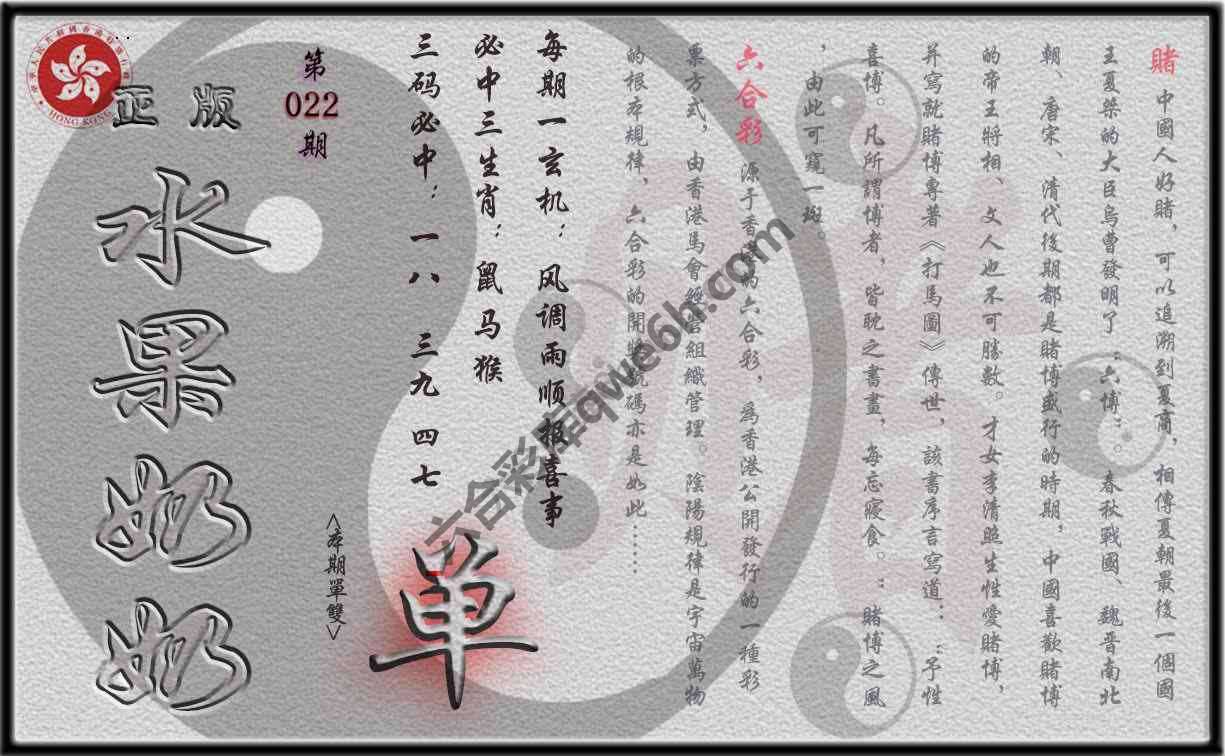 正版
水果奶奶
第
022
期
每期一玄机：风调雨顺报喜事
必中三生肖：鼠马猴
三码必中：一八 三九 四七
<本期單雙>
单
賭 中國人好賭，可以追溯到夏商，相傳夏朝最後一個國
王夏桀的大臣烏曹發明了：六博：。春秋戰國、魏晋南北
朝、唐宋、清代後期都是賭博盛行的時期，中國喜歡賭博
的帝王將相、文人也不可勝數。才女李清照生性愛賭博，
并寫就賭博專著《打馬圖》傳世，該書序言寫道：：予性
喜博。凡所謂博者，皆耽之書畫，每忘寢食。：賭博之風
，由此可窺一斑。
六合彩 源于香港的六合彩，為香港公開發行的一種彩
票方式，由香港馬會經營組織管理。陰陽規律是宇宙萬物
的根本規律、六合彩的開獎號碼亦是如此……
六合彩庫qwe6h.com
HONG KONG